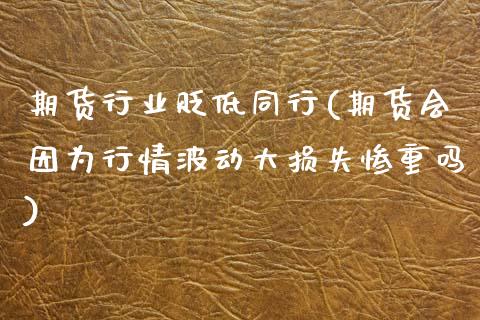 期货行业贬低同行(期货会
因为行情波动大损失惨重吗
)